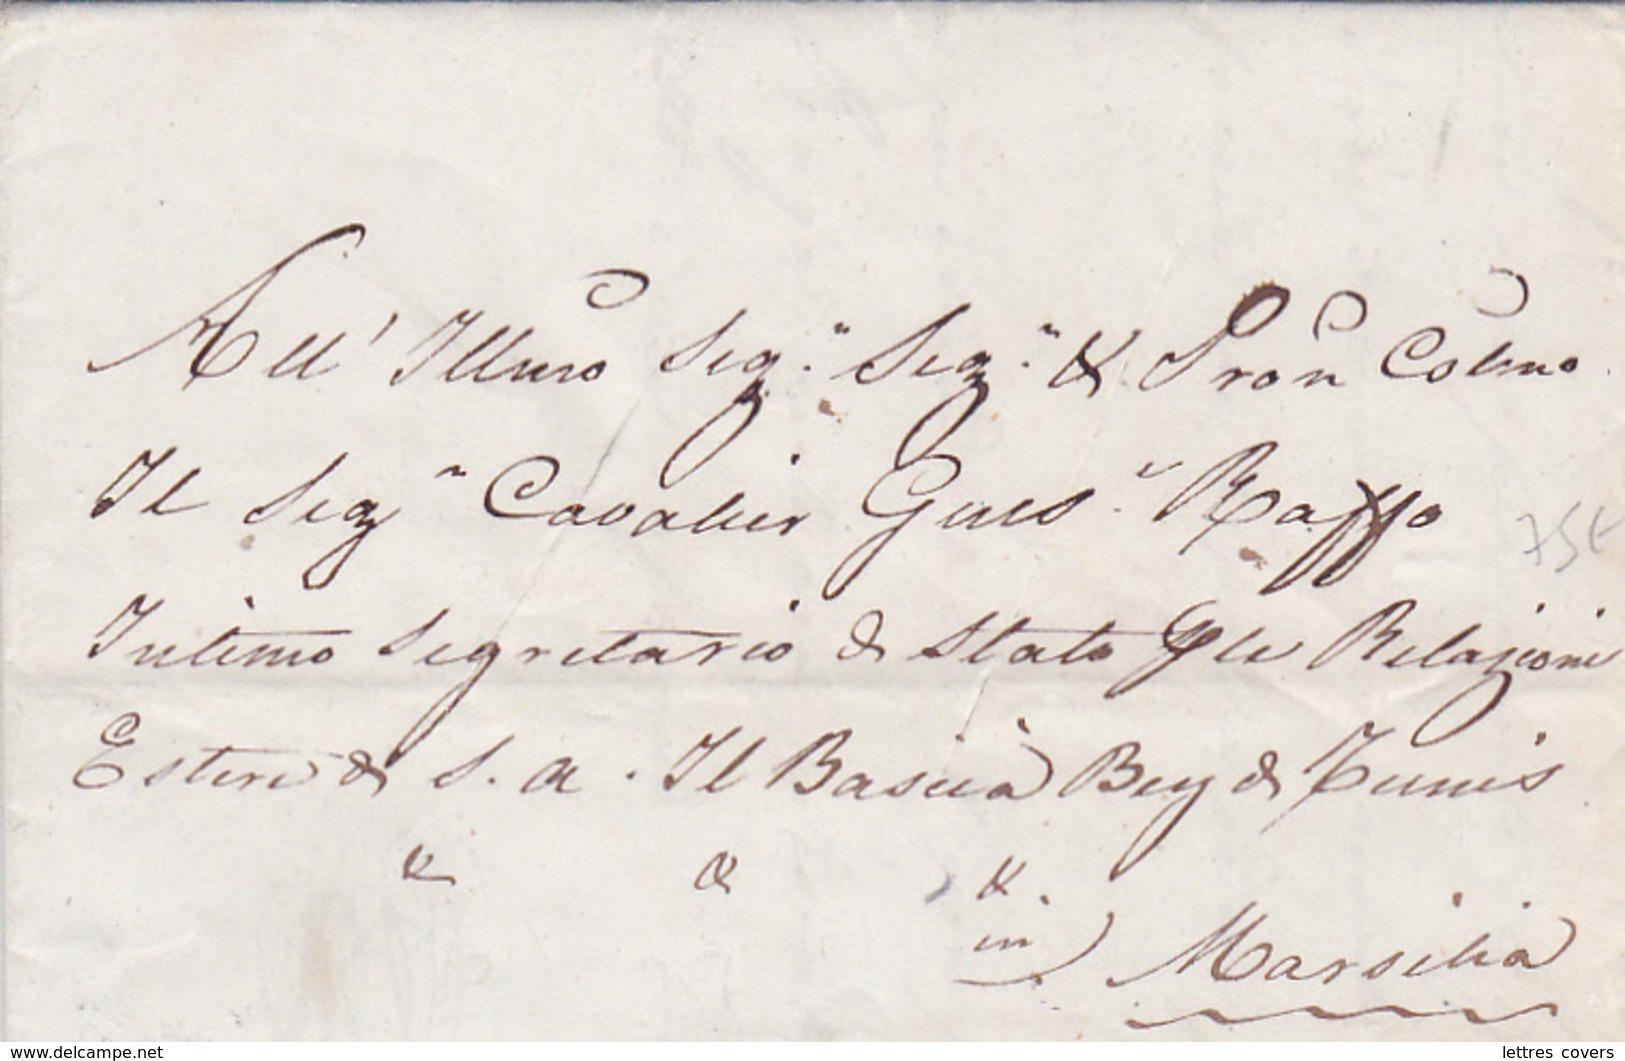 All' Illmo Sig.r Sig.r & Pron Colmo
Il Sigr Cavalier Gius.e Raffo
Intimo Segretario di Stato p le Relazioni
Estere di S. A. Il Bascià Bey di Tunis
& & &
in Marsilia
75€
www.delcampe.net
lettres_covers